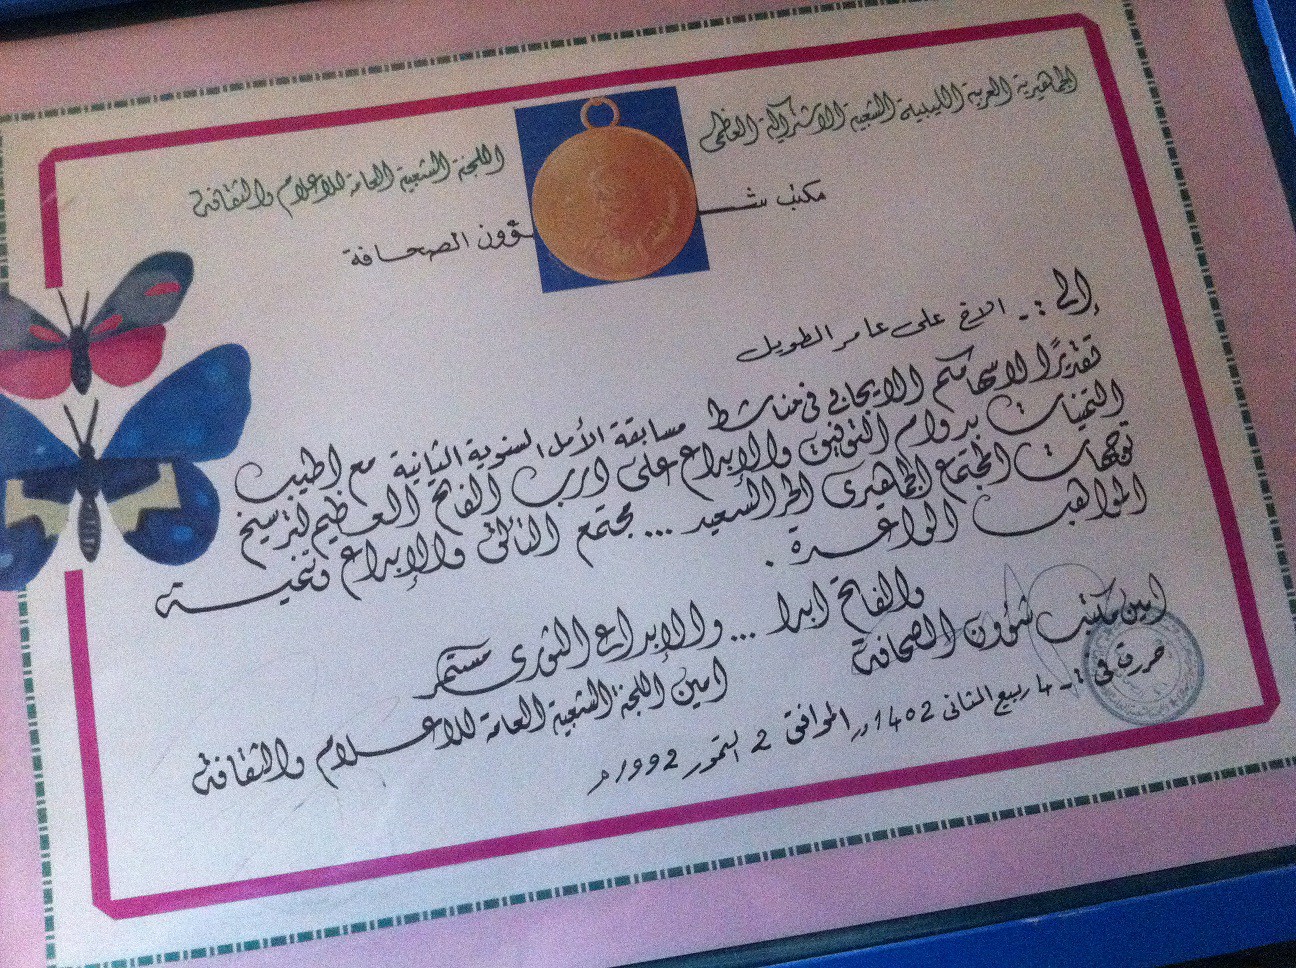 الجماهيرية العربية الليبية الشعبية الاشتراكية العظمى
اللجنة الشعبية العامة للاعلام والثقافة
مكتب شــؤون الصحافة
إلى :ـ الاخ على عامر الطويل
تقديرًا لاسهامكم الايجابي في مناشط مسابقة الأمل السنوية الثانية مع اطيب
التمنيات بدوام التوفيق والإبداع على درب الفاتح العظيم لترسيخ
توجهات المجتمع الجماهيرى الحر السعيد ... مجتمع التألق والإبداع وتنمية
المواهب الواعدة .
والفاتح ابدا ... والابداع الثورى مستمر
امين مكتب شؤون الصحافة
امين اللجنة الشعبية العامة للاعلام والثقافة
حرر فى 4 ربيع الثانى 1402 ور الموافق 2 التمور 1992م